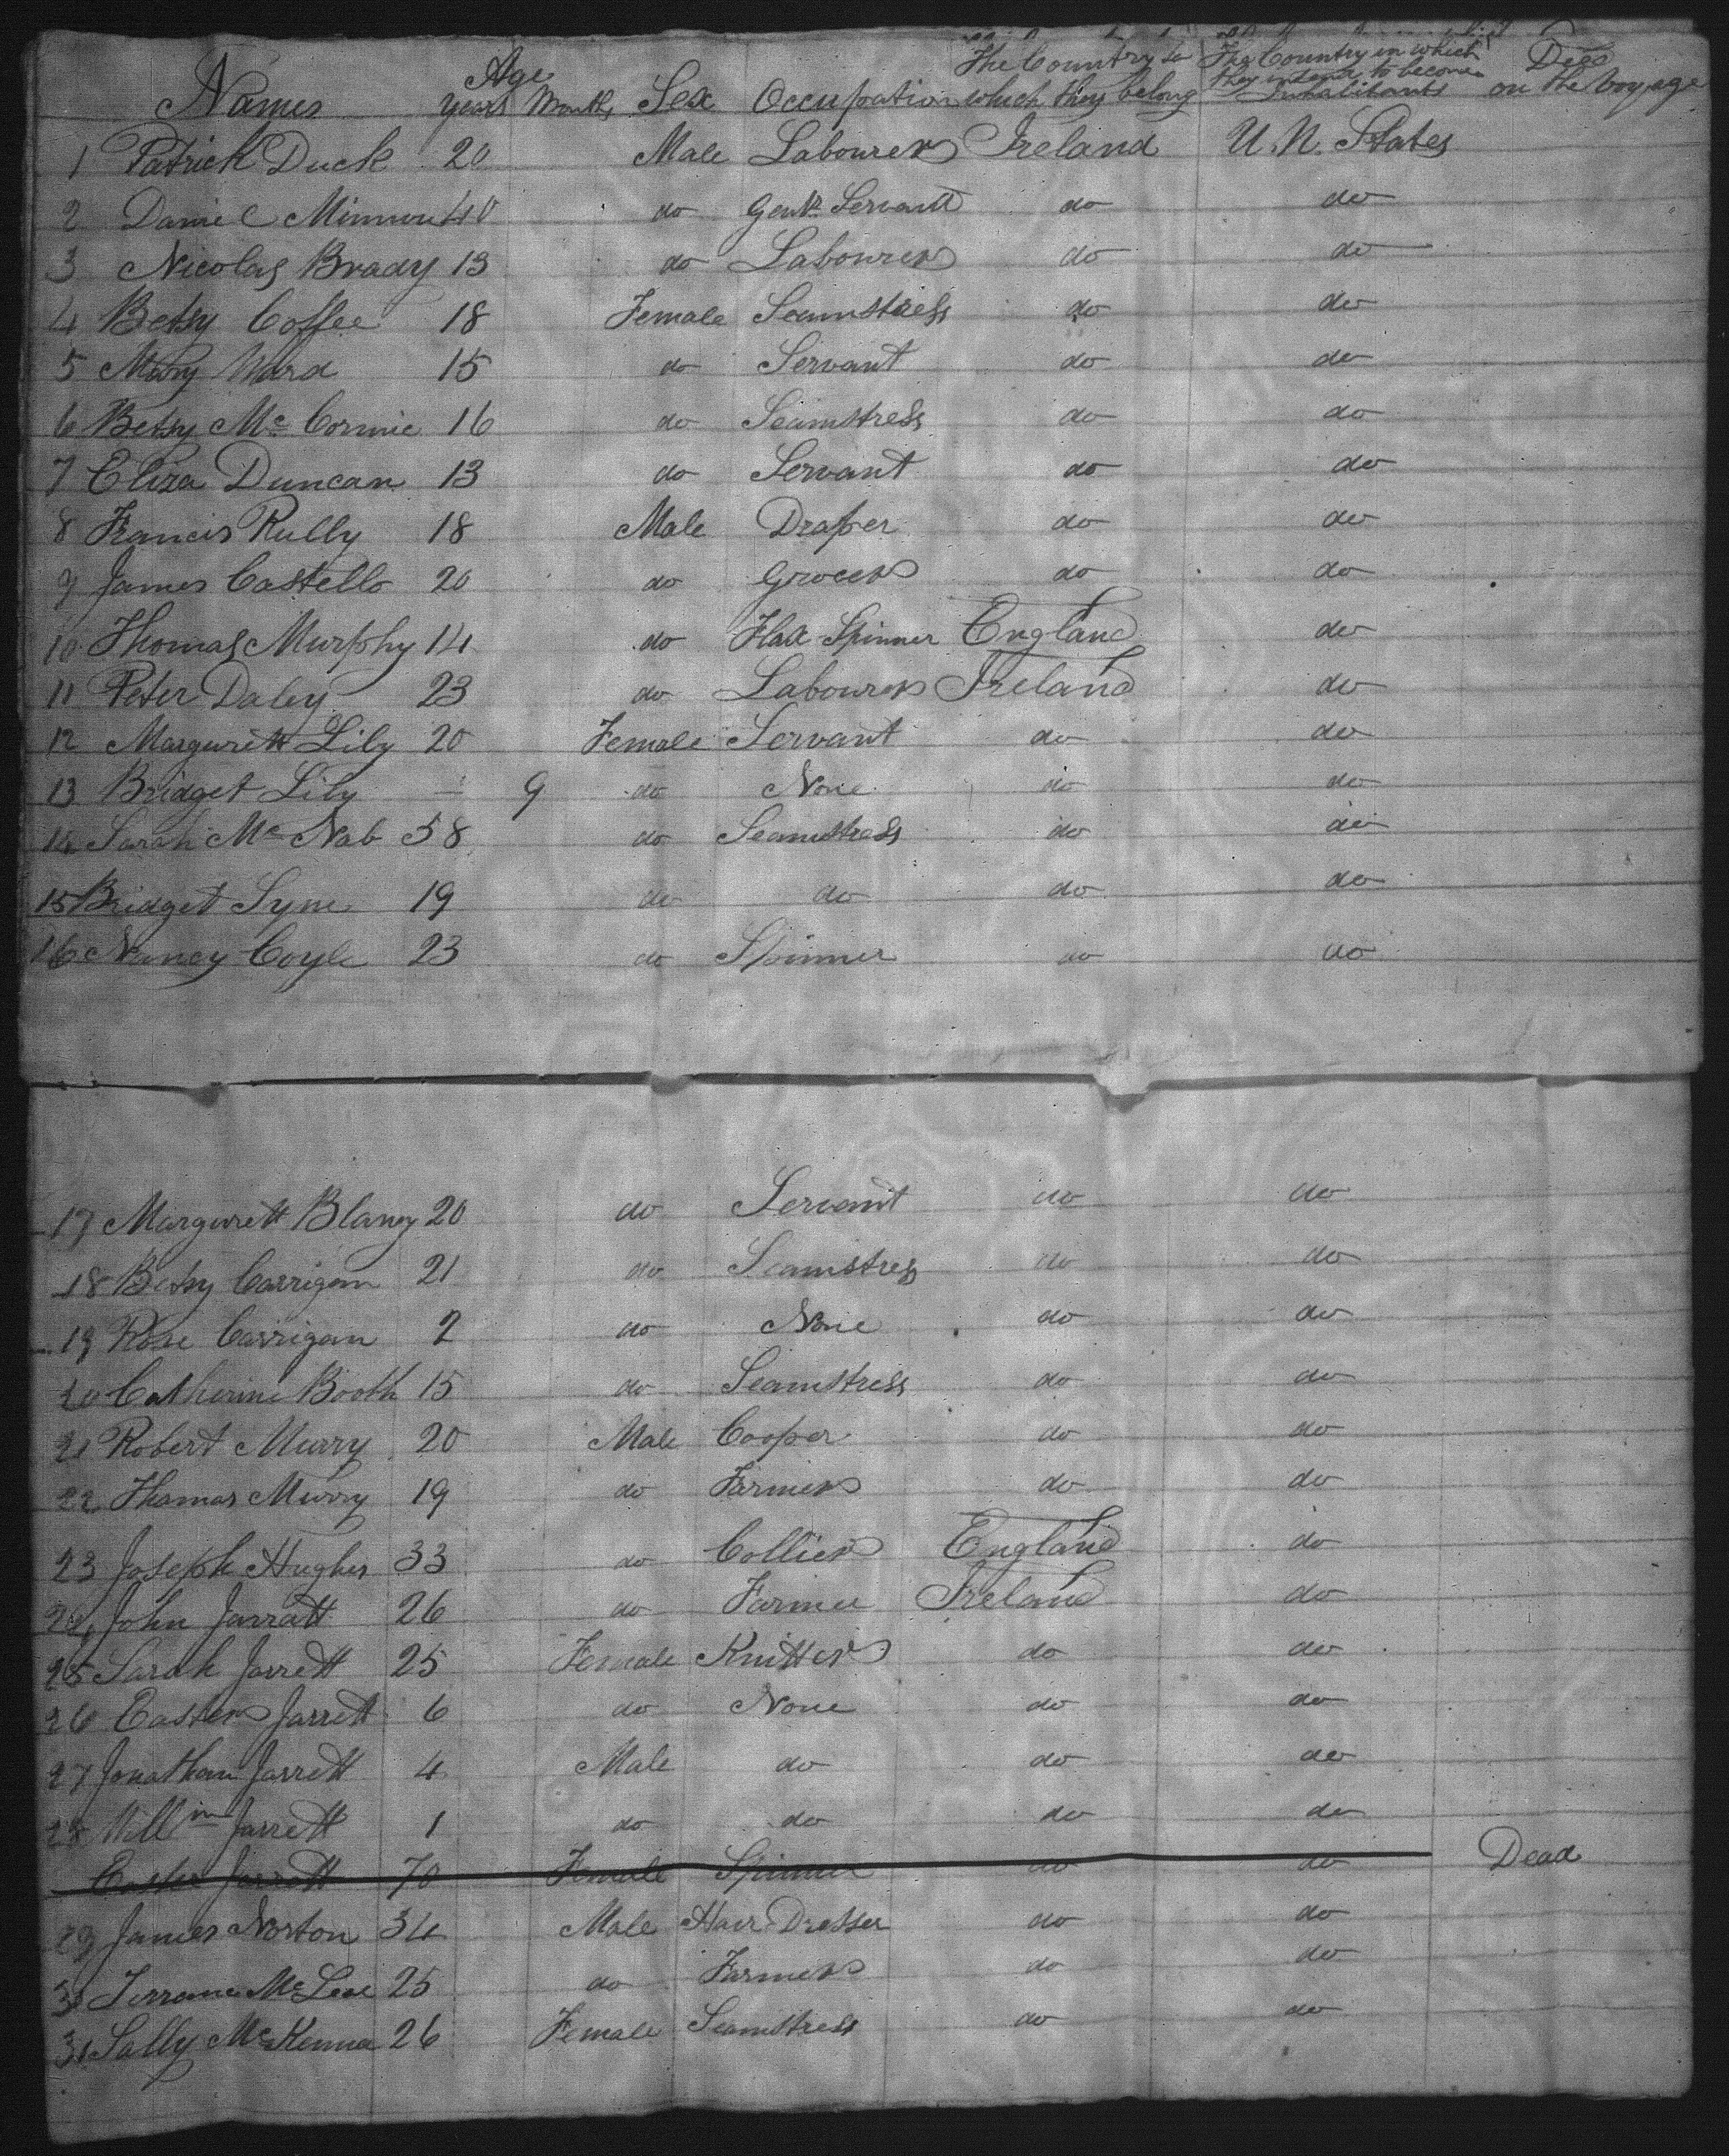 Names Age years Months Sex Occupation The Country to which they belong The Country in which they intend to become Inhabitants Died on the Voyage
1 Patrick Duck 20 Male Labourer Ireland U. N. States
2 Daniel 40 do Gentn Servant do do
3 Nicolas Brady 13 do Labourer do do
4 Betsy Coffee 18 Female Seamstress do do
5 Mary Ward 15 do Servant do do
6 Betsy Mc Cormic 16 do Seamstress do do
7 Eliza Duncan 13 do Servant do do
8 Francis Rully 18 Male Draper do do
9 James Castello 20 do Grocer do do
10 Thomas Murphy 14 do Flax Spinner England do
11 Peter Daley 23 do Labourer Ireland do
12 Margurett Lily 20 Female Servant do do
13 Bridget Lily - 9 do None do do
14 Sarah Mc Nab 58 do Seamstress do do
15 Bridget Syne 19 do do do do
16 Nancy Coyle 23 do Spinner do do
17 Margurett Blaney 20 do Servant do do
18 Betsy Carrigan 21 do Seamstress do do
19 Rose Carrigan 2 do None do do
20 Catherine Booth 15 do Seamstress do do
21 Robert Murry 20 Male Cooper do do
22 Thomas Murry 19 do Farmer do do
23 Joseph Hughes 33 do Collier England do
24 John Jarratt 26 do Farmer Ireland do
25 Sarah Jarrett 25 Female Knitter do do
26 Easter Jarrett 6 do None do do
27 Jonathan Jarrett 4 Male do do do
28 Willm Jarrett 1 do do do do
Easter Jarrett 70 Female Spinner do do Dead
29 James Norton 34 Male Hair Dresser do do
30 Mc 25 do Farmer do do
31 Sally McKenna 26 Female Seamstress do do